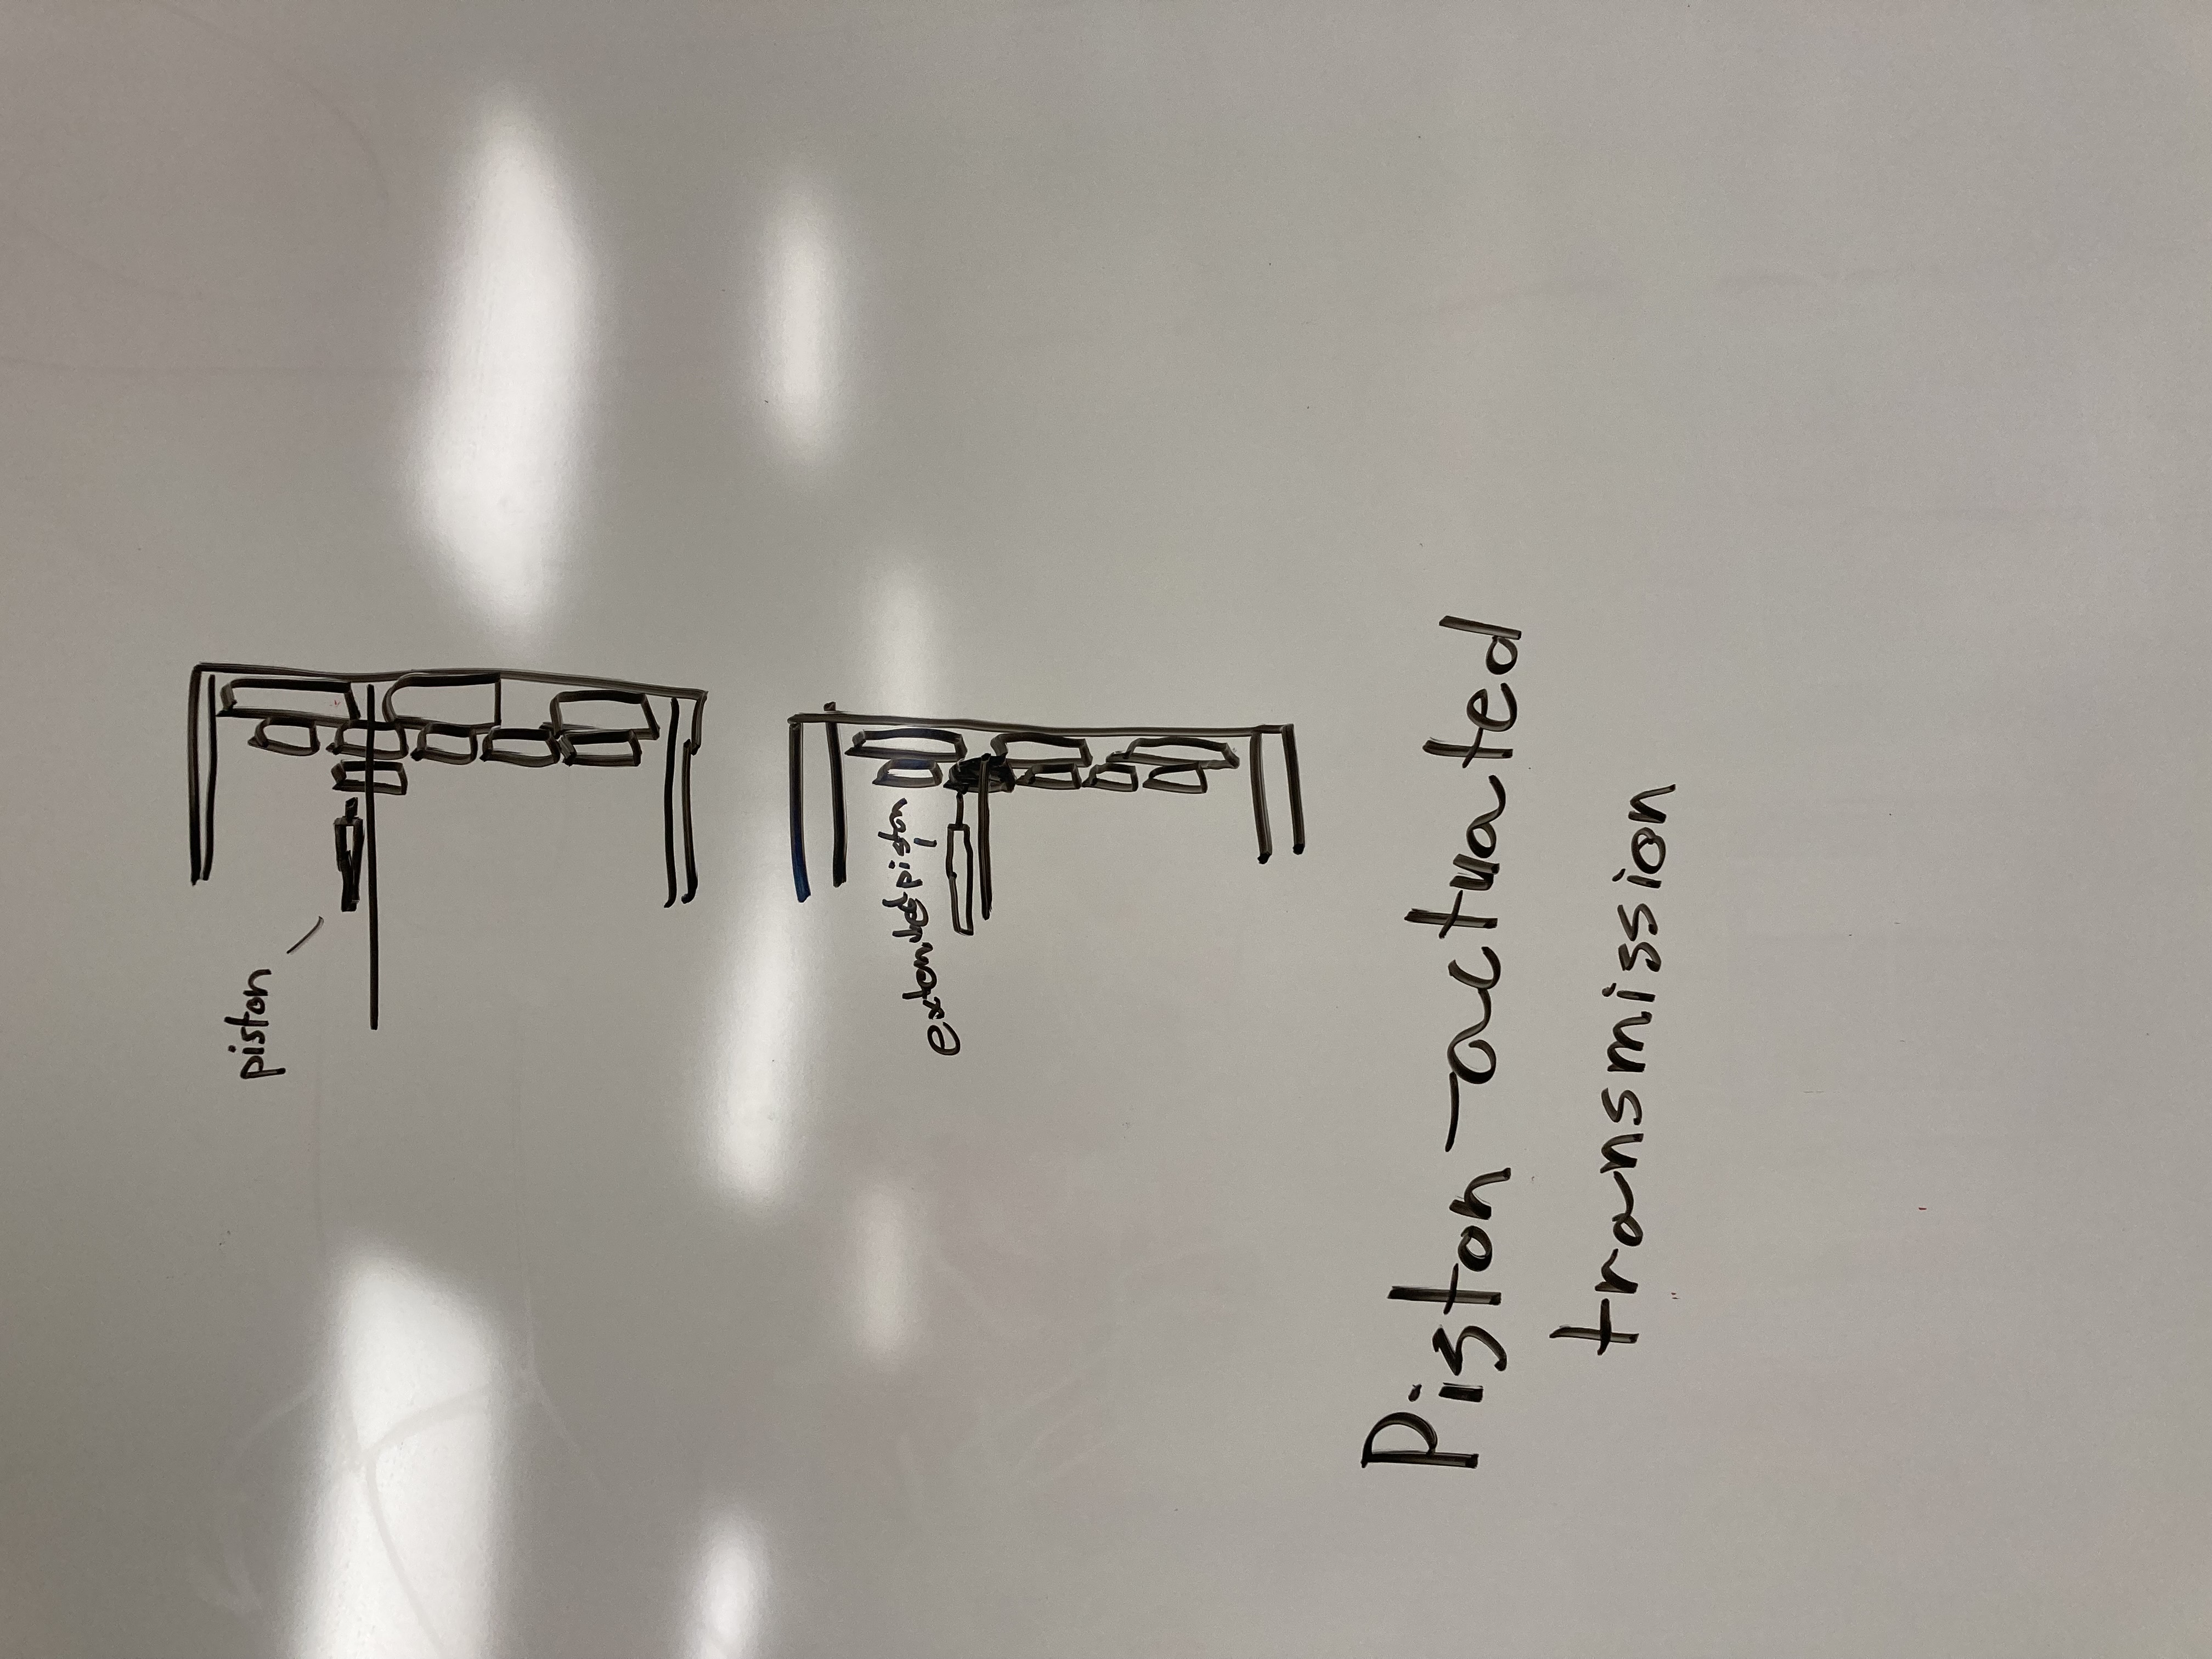 piston
extended piston
Piston-actuated
transmission